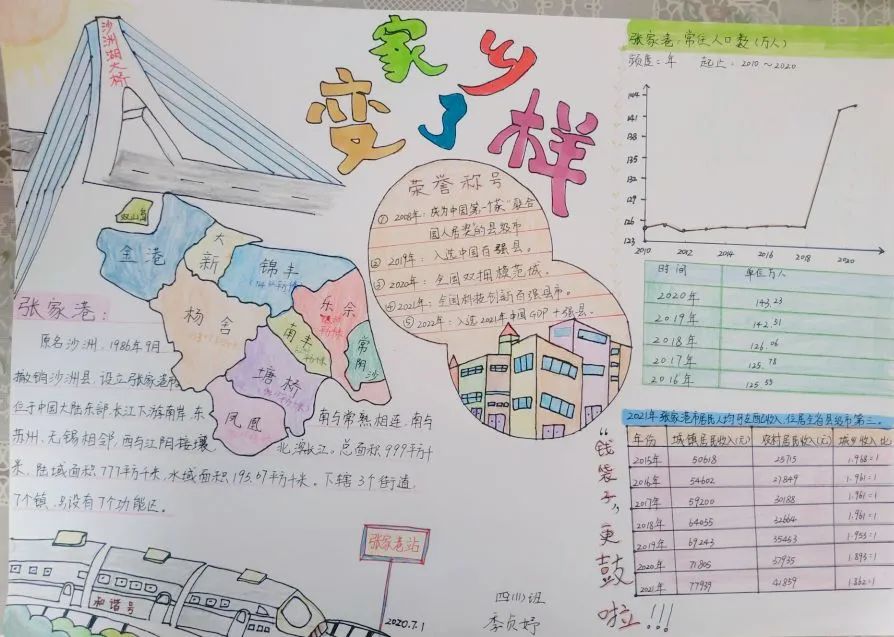 沙洲湖大桥
家乡
变了样
张家港:常住人口数(万人)
频度:年 起止:2010~2020
144
141
138
135
132
129
126
123
2010 2012 2014 2016 2018 2020
时间 单位万人
2020年 143.23
2019年 142.51
2018年 126.06
2017年 125.78
2016年 125.55
荣誉称号
①2008年:成为中国第一个获“联合
国人居奖”的县级市
②2019年:入选中国百强县。
③2020年:全国双拥模范城。
④2021年:全国科技创新百强县市。
⑤2022年:入选2021年中国GDP十强县。
双山岛
金港
大新
锦丰
乐余
杨舍
南丰
常阴沙
塘桥
凤凰
张家港:
原名沙洲,1986年9月
撤销沙洲县,设立张家港市
位于中国大陆东部,长江下游南岸,东
南与常熟相连,南与
苏州、无锡相邻,西与江阴接壤
北滨长江。总面积999平方千
米,陆域面积777平方千米,水域面积193.67平方千米。下辖3个街道,
7个镇,另设有7个功能区。
“钱袋子”更鼓啦!!!
年份 城镇居民收入(元) 农村居民收入(元) 城乡收入比
2015年 50618 25715 1.968:1
2016年 54602 27849 1.961:1
2017年 59200 30188 1.961:1
2018年 64055 32664 1.961:1
2019年 69243 35463 1.953:1
2020年 71805 37935 1.893:1
2021年 77939 41859 1.862:1
张家港站
和谐号
2020.7.1
四(11)班
李贞妤